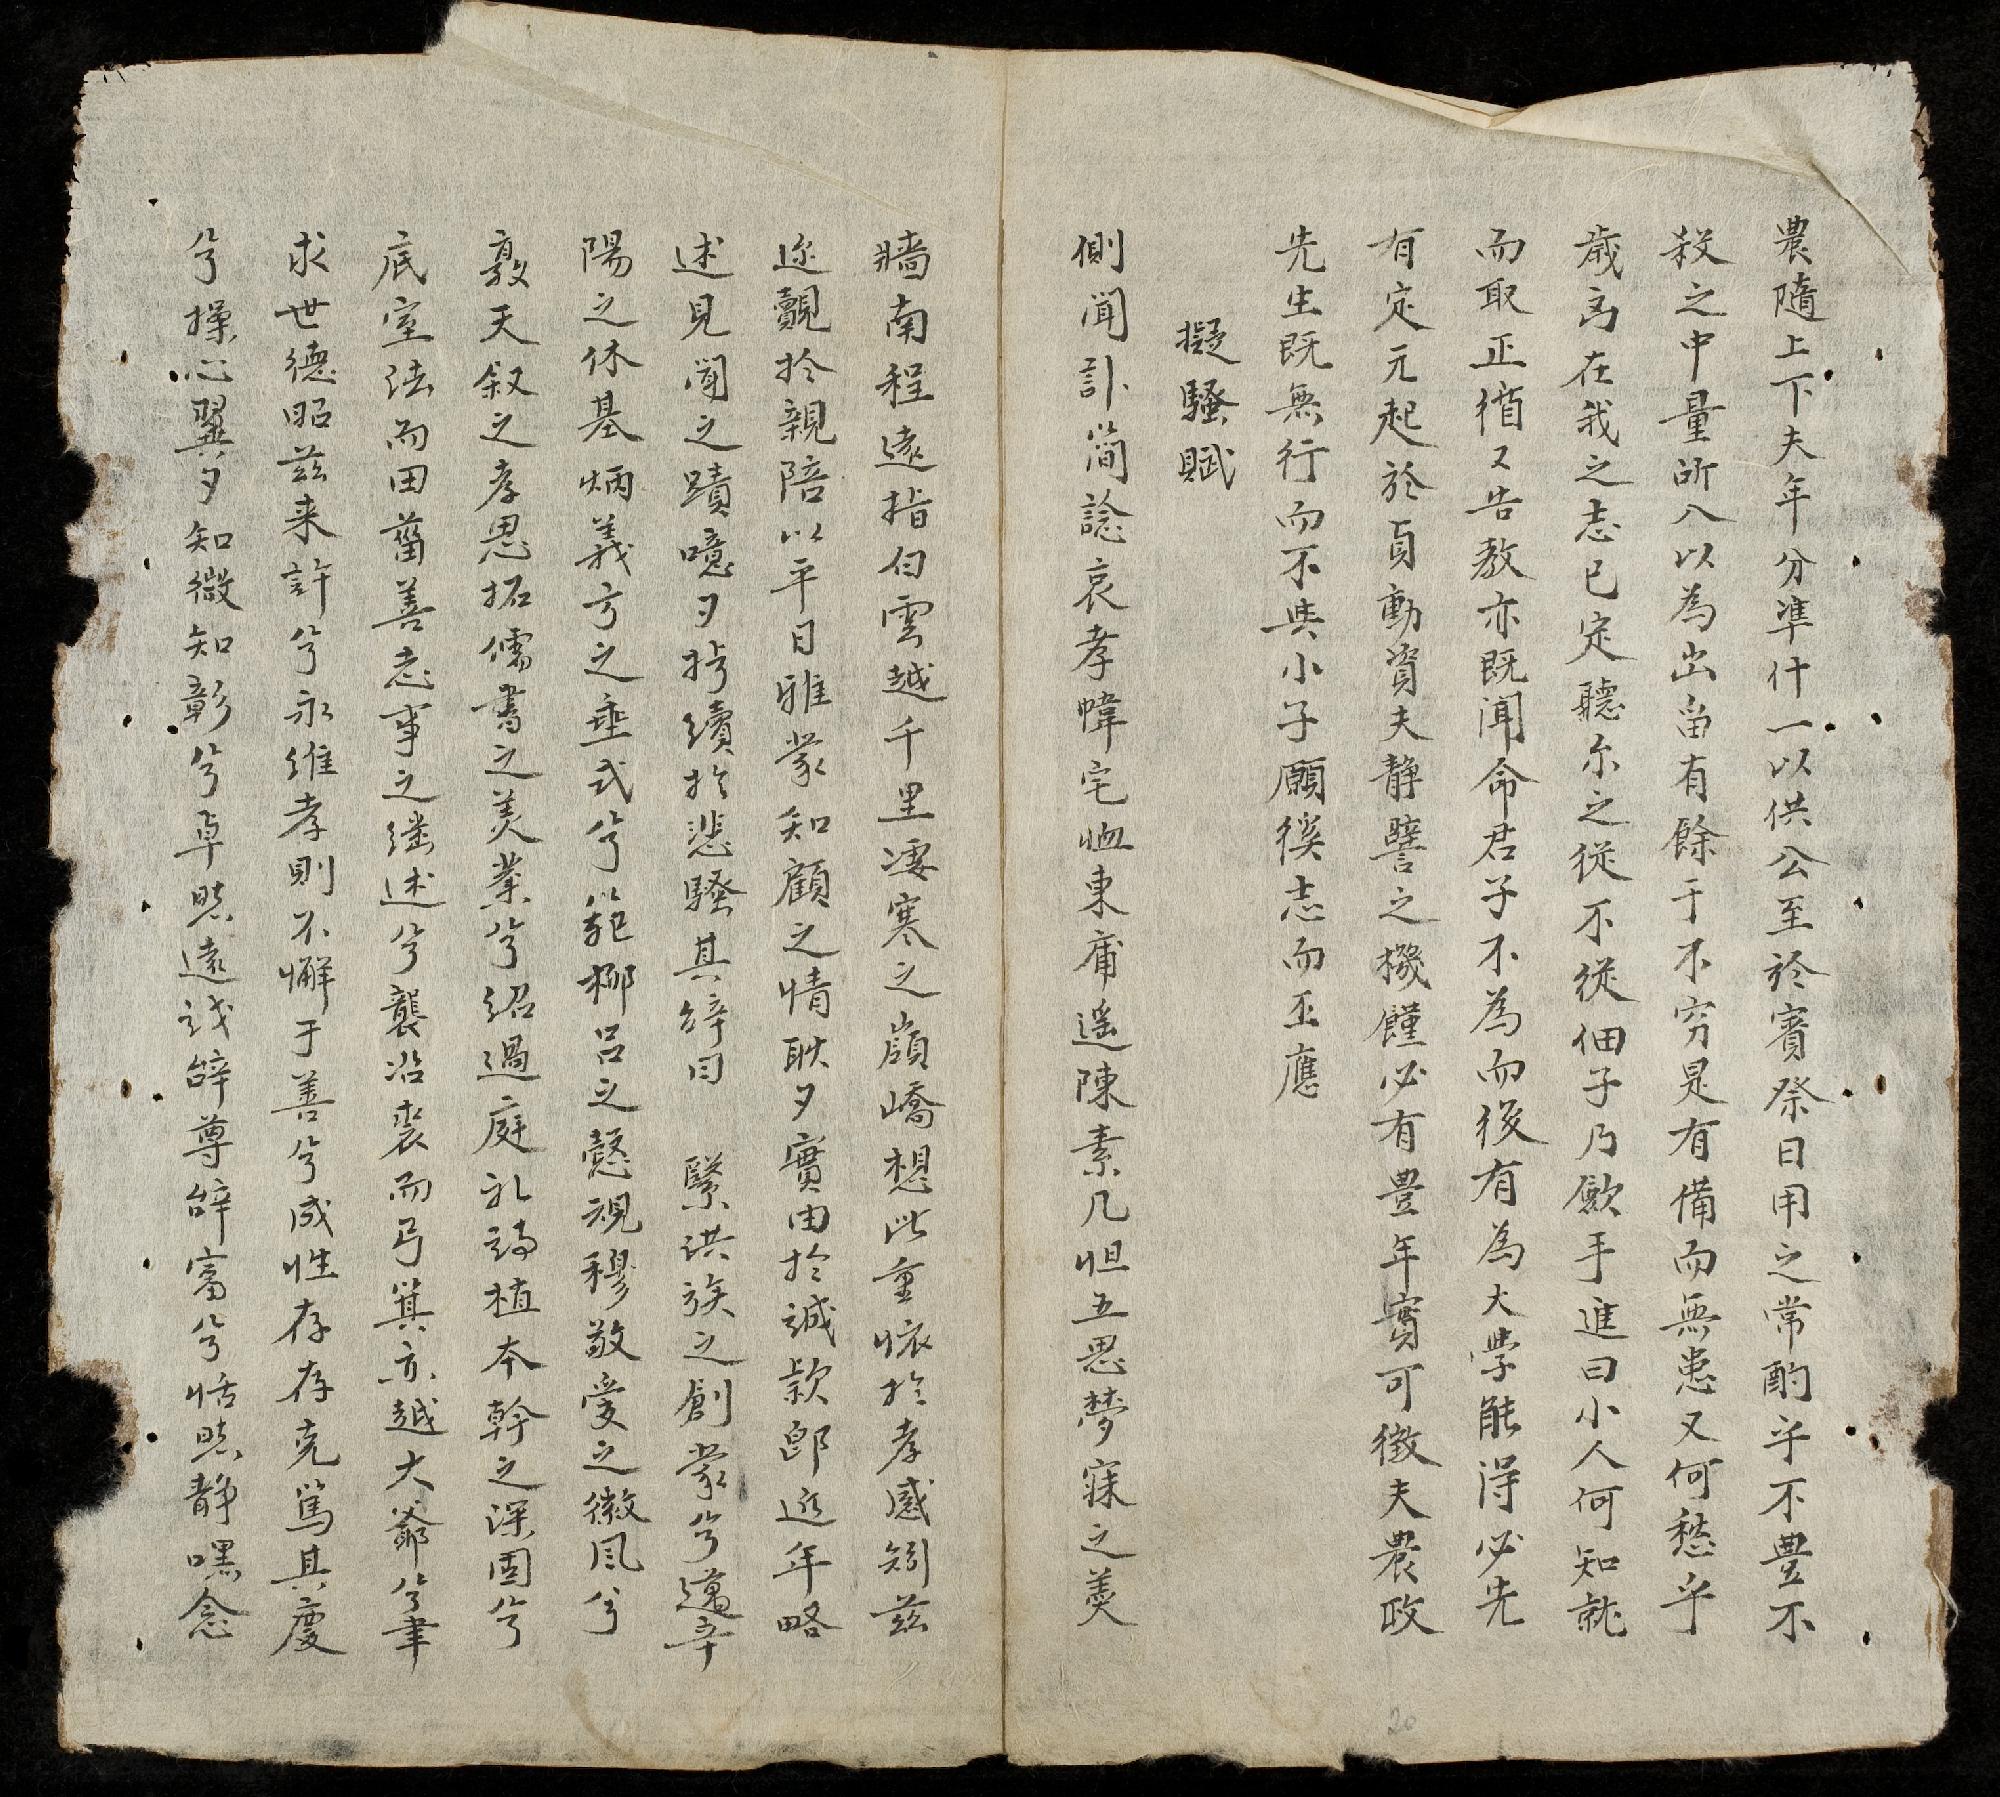 農隨上下夫年分準什一以供公至於賓祭日用之常酌乎不豊不
殺之中量所入以為出畄有餘于不穷是有備而無患又何愁乎
歳高在我之志已定聽尔之従不従佃子乃歛手進曰小人何知就
而取正循又告教亦既闻命君子不為而後有為大學能淂必先
有定元起於貞動資夫静譬之機饉必有豊年實可徵夫農政
先生既無行而不與小子願徯志而丕應
擬騷賦
側闻訃简諗哀孝幃宅恤東庯遥陳素几怛五思梦寐之羮
牆南程遠指白雲越千里凄寒之嶺嶠想此重懐扵孝感矧茲
迩觀扵親陪以平日雅蒙知顧之情耿夕實由扵諴欵即近年略
述見闻之蹟噫夕抍續扵悲騷其辞曰 繄洪族之創蒙兮邁辛
陽之休基炳義方之垂式兮範栁吕之懿規穆敬爱之徽風兮
敦天叙之孝思拓儒書之美業兮紹過庭礼詩植本幹之深固兮
底室法而田菑善志事之继述兮襲治裘而弓箕亦越大爺兮聿
求世德昭茲来許兮永維孝則不懈于善兮成性存存克篤其慶
兮操心翼夕知微知彰兮卓然遠識辞尊辞富兮恬然静嘿念